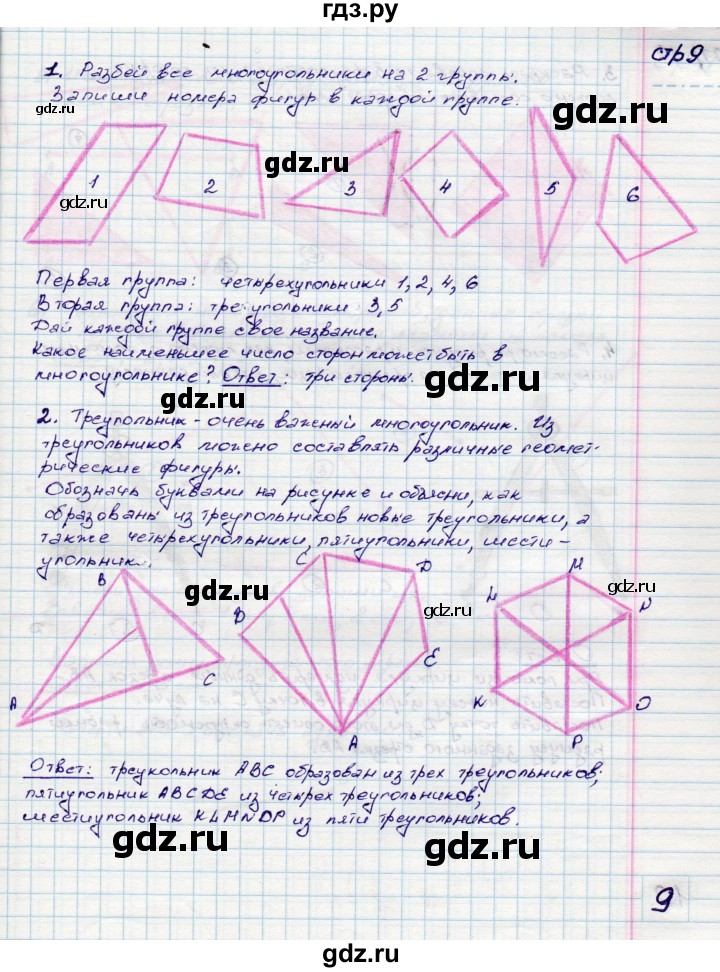 гдз.ру
стр9
1. Разбей все многоугольники на 2 группы.
Запиши номера фигур в каждой группе.
gdz.ru
gdz.ru
gdz.ru
gdz.ru
1 2 3 4 5 6
gdz.ru
gdz.ru
Первая группа: четырехугольники 1, 2, 4, 6
Вторая группа: треугольники 3,5
Дай каждой группе свое название.
Какое наименьшее число сторон может быть в
многоугольнике? Ответ: три стороны.
gdz.ru
gdz.ru
gdz.ru
2. Треугольник - очень важный многоугольник. Из
треугольников можно составлять различные геомет-
рические фигуры.
gdz.ru
gdz.ru
Обозначь буквами на рисунке и объясни, как
образованы из треугольников новые треугольники, а
также четырехугольники, пятиугольники, шести-
угольник.
gdz.ru
gdz.ru
B C D M
L N
B
gdz.ru
gdz.ru
gdz.ru
C E
K O
A
A P
gdz.ru
gdz.ru
Ответ: треукольник ABC образован из трех треугольников;
пятиугольник ABCDE из четырех треугольников;
шестиугольник KLMNDP из пяти треугольников.
gdz.ru
gdz.ru
gdz.ru
9
gdz.ru